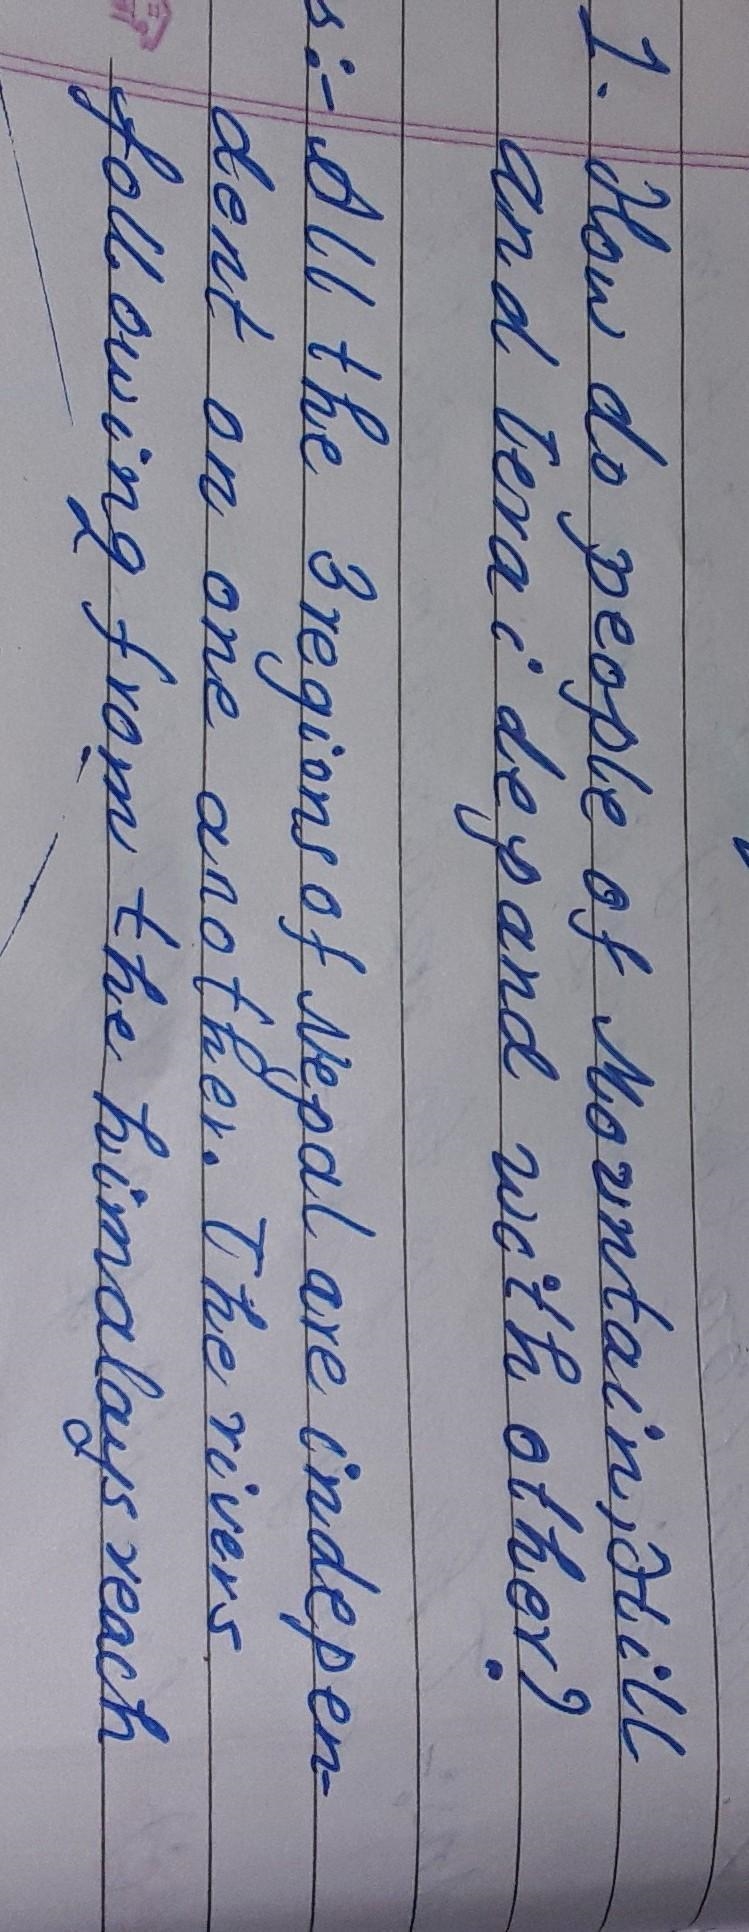 1. How do people of Mountain, Hill
and Terai depand with other?
s:- All the 3 regions of Nepal are indepen-
dent on one another. The rivers
following from the himalays reach